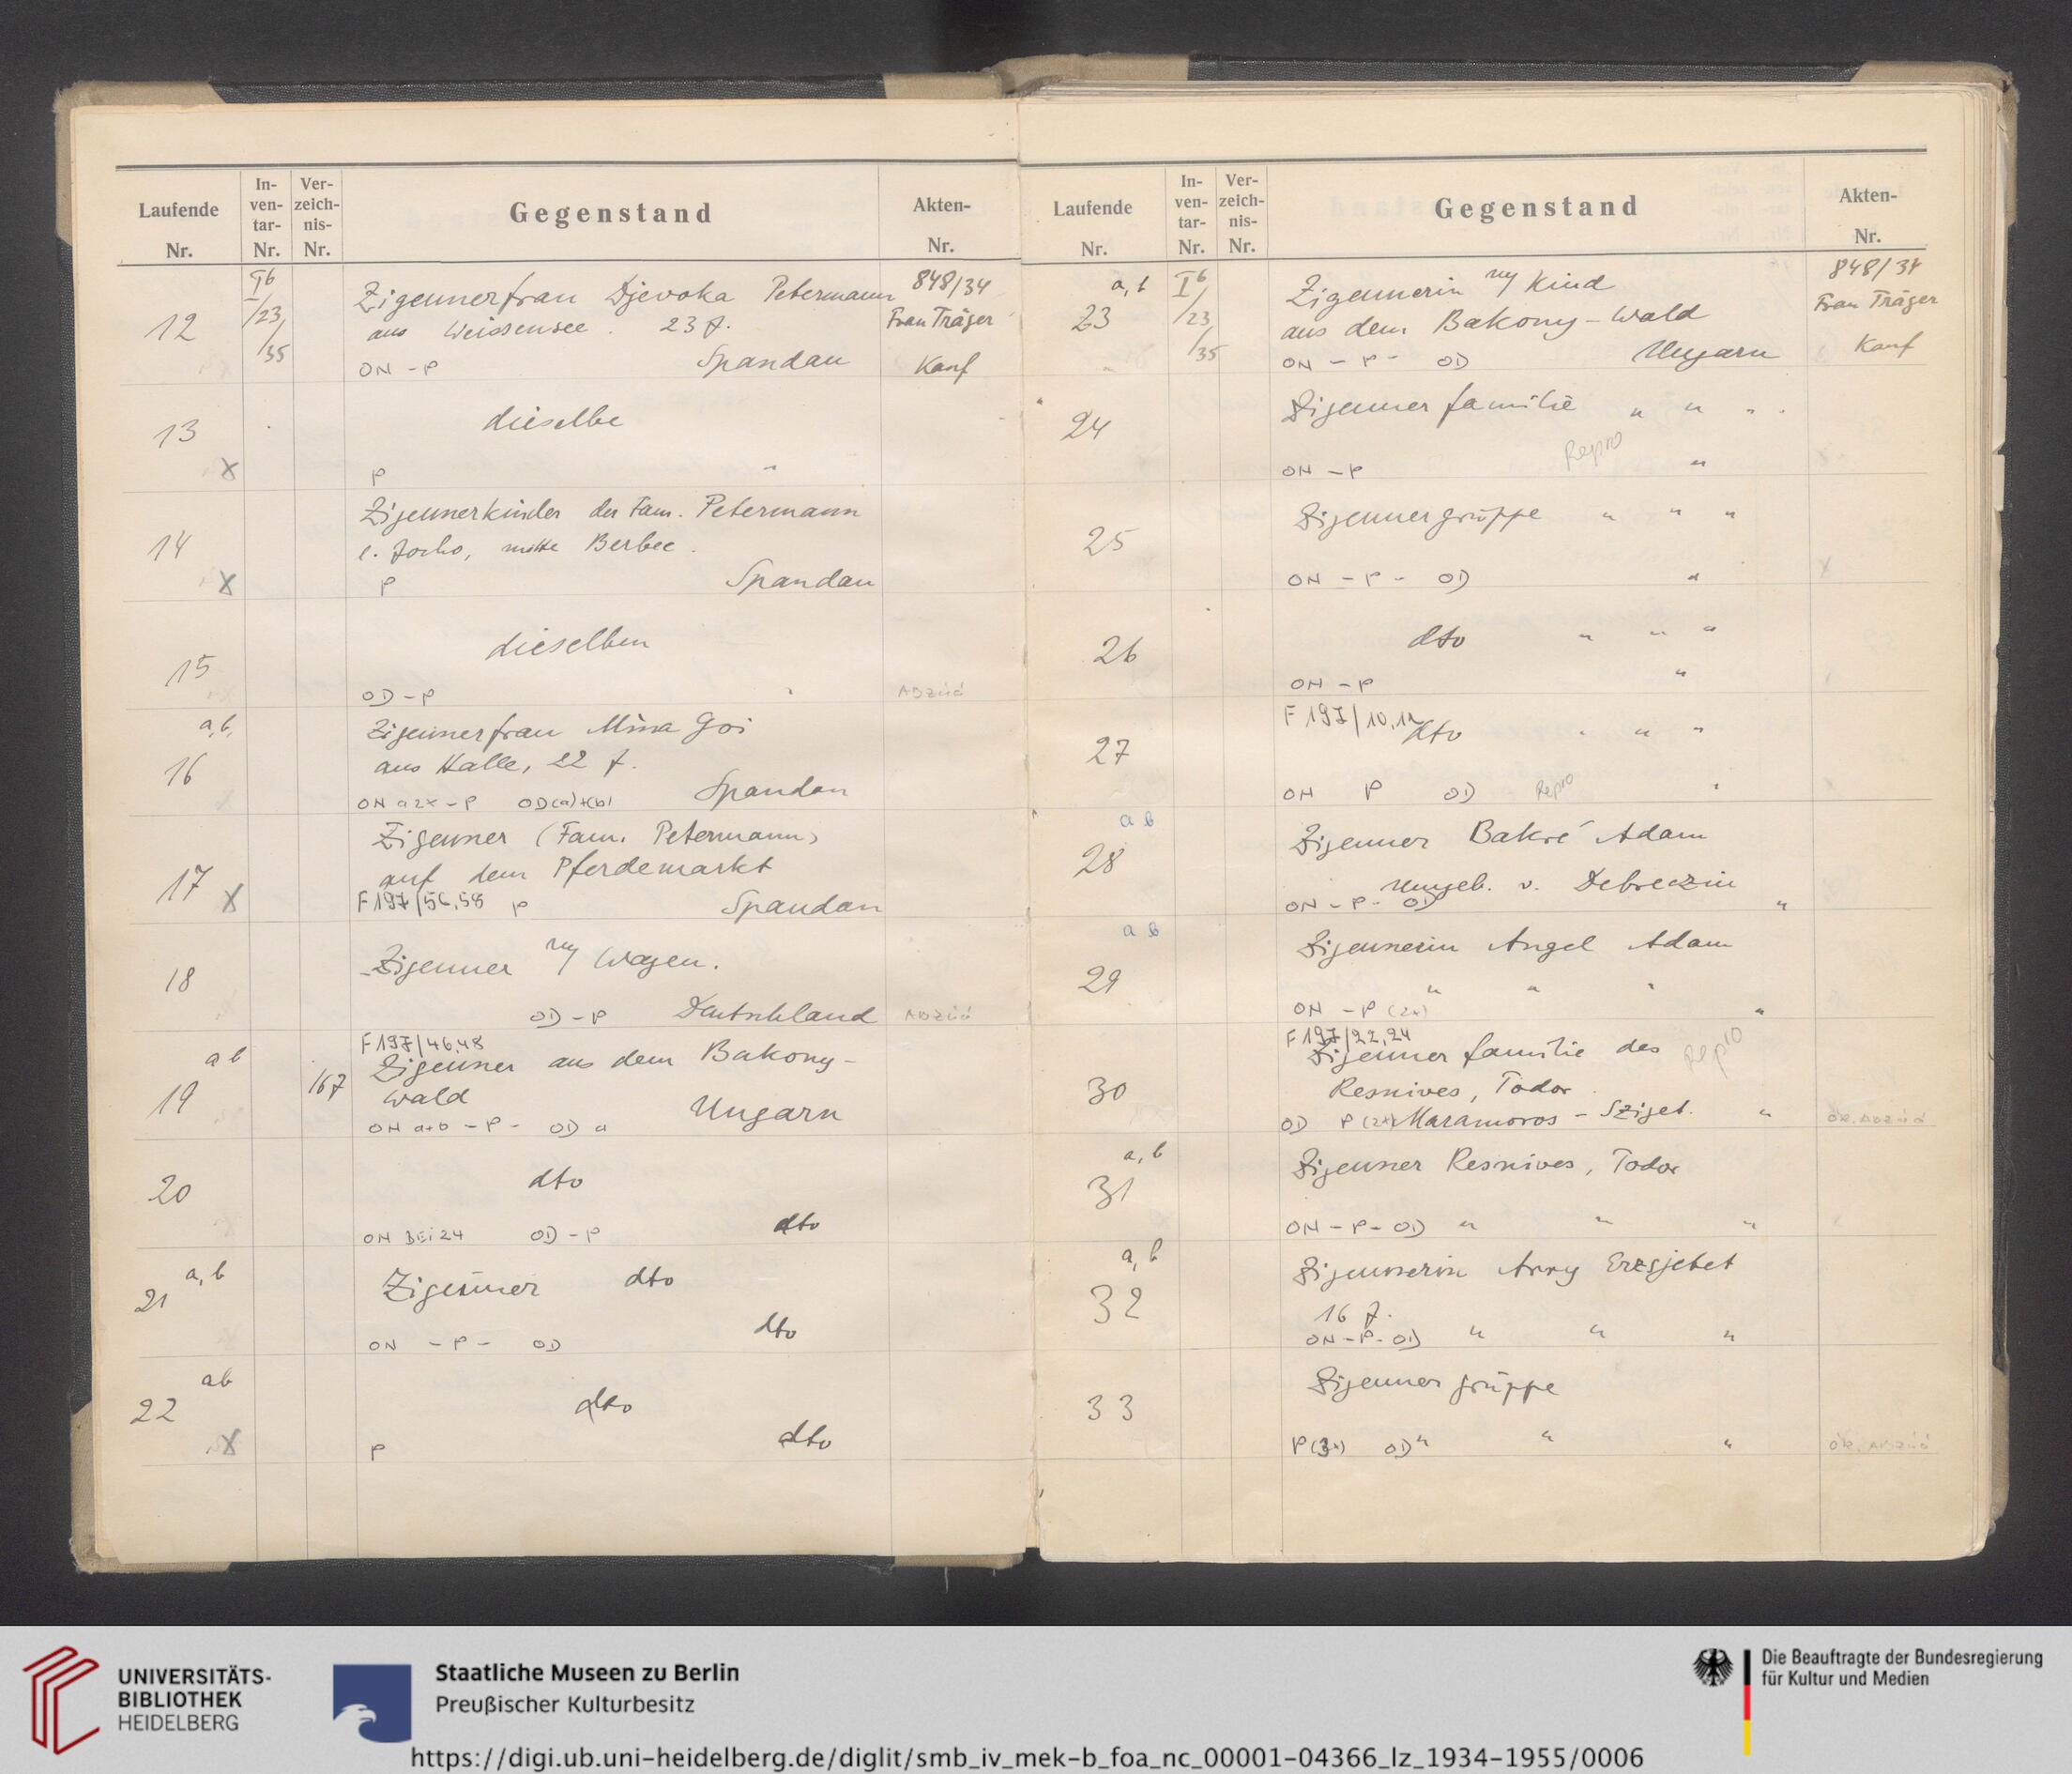 Laufende Nr.
In-ven-tar-Nr.
Ver-zeich-nis-Nr.
Gegenstand
Akten-Nr.
12
I b /23 /35
Zigeunerfrau Djevoka Petermann
aus Weissensee. 23 J.
ON - P Spandau
848/34
Frau Träger
Kauf
13
X
dieselbe
P "
14
X
Zigeunerkinder der Fam. Petermann
l. Jocho, mitte Berbee.
P Spandau
15
dieselben
OD - P "
ABZÜG
a, b,
16
Zigeunerfrau Mina Goi
aus Halle, 22 J.
ON a 2x - P OD(a)+(b) Spandau
17
X
Zigeuner (Fam. Petermann)
auf dem Pferdemarkt
F 197/56,58 P Spandau
18
Zigeuner m/ Wagen.
OD - P Deutschland
ABZÜG
a b
19
167
F 197/46,48
Zigeuner aus dem Bakony-
Wald
ON a+b - P - OD a Ungarn
20
dto
ON BEI 24 OD - P dto
a, b
21
Zigeuner dto
ON - P - OD dto
a b
22
X
dto
P dto
Laufende Nr.
In-ven-tar-Nr.
Ver-zeich-nis-Nr.
Gegenstand
Akten-Nr.
a, b
23
I b /23 /35
Zigeunerin m/ Kind
aus dem Bakony - Wald
ON - P - OD Ungarn
848/34
Frau Träger
Kauf
24
Zigeunerfamilie " " "
Repro
ON - P "
25
Zigeunergruppe " " "
ON - P - OD "
26
dto " " "
ON - P "
27
F 197/10,12
dto " " "
ON P OD Repro "
a b
28
Zigeuner Bakré Adam
Umgeb. v. Debreczin
ON - P - OD "
a b
29
Zigeunerin Angel Adam
" " "
ON - P (2x) "
30
F 197/22,24
Zigeunerfamilie des Repro
Resnives, Todor
OD P (2x) Maramoros - Sziget. "
OR. ABZÜG
a, b
31
Zigeuner Resnives, Todor
ON - P - OD " " "
a, b
32
Zigeunerin Arry Erzsjebet
16 J.
ON - P - OD " " "
33
Zigeunergruppe
P (3x) OD " " "
OR. ABZÜG
UNIVERSITÄTS-
BIBLIOTHEK
HEIDELBERG
Staatliche Museen zu Berlin
Preußischer Kulturbesitz
Die Beauftragte der Bundesregierung
für Kultur und Medien
https://digi.ub.uni-heidelberg.de/diglit/smb_iv_mek-b_foa_nc_00001-04366_lz_1934-1955/0006